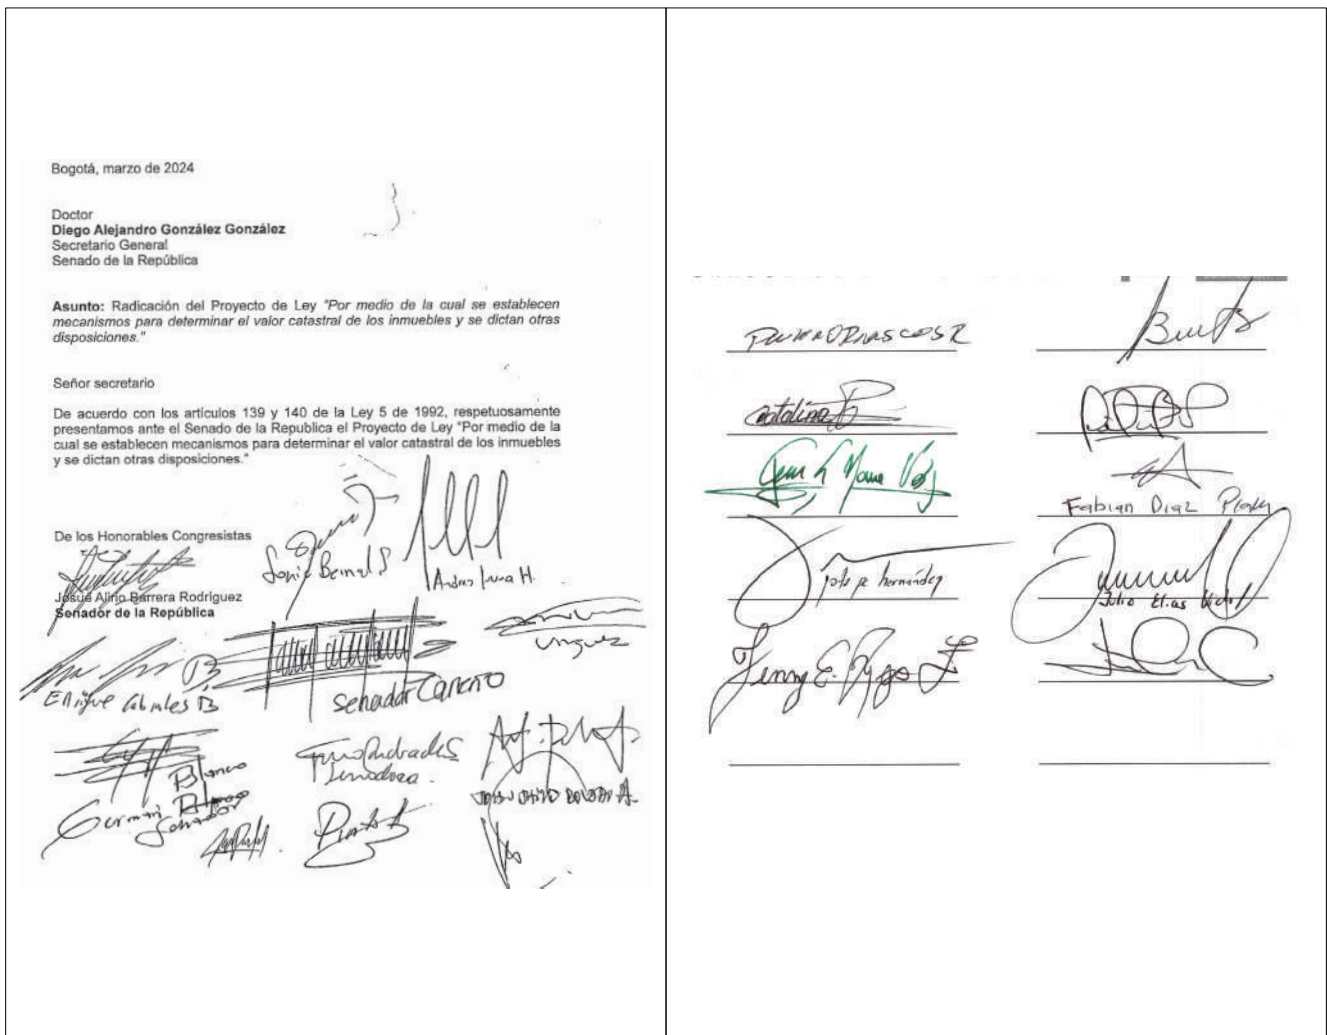 Bogotá, marzo de 2024
Doctor
Diego Alejandro González González
Secretario General
Senado de la República
Asunto: Radicación del Proyecto de Ley "Por medio de la cual se establecen
mecanismos para determinar el valor catastral de los inmuebles y se dictan otras
disposiciones."
Señor secretario
De acuerdo con los artículos 139 y 140 de la Ley 5 de 1992, respetuosamente
presentamos ante el Senado de la Republica el Proyecto de Ley "Por medio de la
cual se establecen mecanismos para determinar el valor catastral de los inmuebles
y se dictan otras disposiciones."
De los Honorables Congresistas
Sonia Bernal S
Andres Guerra H.
Josué Alirio Barrera Rodríguez
Senador de la República
Enrique Cabrales B
Senador Carreño
Blanco
German Blanco
Senador
Senadora
Catalina
Fabian Diaz Plata
hernández
Julio Elias Vidal
Jenny E.